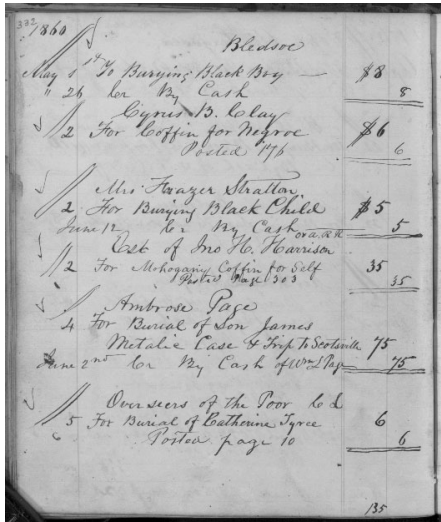 332
1860
Bledsoe
May 1st To Burying Black Boy — $8
" 26 Cr By Cash 8
Cyrus B. Clay
2 For Coffin for Negroe $6
Posted 176 6
Mrs Frazer Stratton
2 For Burying Black Child $5
June 12 Cr By Cash 5
Est of Jno H. Harrison
2 For Mohogany Coffin for Self 35
Posted Page 303 35
Ambrose Page
4 For Burial of Son James
Metalic Case & Trip to Scotsville 75
June 2nd Cr By Cash of Wm L Page 75
Overseers of the Poor
5 For Burial of Catherine Tyree 6
Posted page 10 6
135